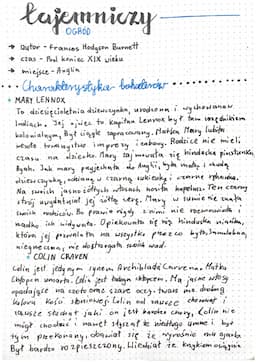 tajemniczy
OGRÓD
→ autor - Frances Hodgson Burnett
→ czas - Pod koniec XIX wieku
→ miejsce - Anglia
Charakterystyka bohaterów
• MARY LENNOX
To dziesięcioletnia dziewczynka, urodzona i wychowana w
Indiach. Jej ojciec to Kapitan Lennox był tam urzędnikiem
kolonialnym. Był ciągle zapracowany. Matka Mary lubiła
wesołe towarzystwo imprezy i zabawy. Rodzice nie mieli
czasu na dziecko. Mary zajmowała się hinduska piastunka,
Ayah. Jak mary przyjechała do Anglii, była chudą
dziewczynką, odzianą w czarną sukienkę i czarne
Na swoich jasno żółtych włosach nosiła kapelusz. Ten czarny
strój uwydatniał jej żółtą cerę. Mary w sumie nie znała
swoich rodziców. Bo prawie nigdy z nimi nie rozmawiała i
rzadko ich widywała. Opiekowała się nią hinduska niania,
która jej pozwalała na wszystko przez co była samolubna,
niegrzeczna, nie dostrzegała swoich wad.
• COLIN CRAVEN
Colin jest jedynym synem Archibalda Cravena. Matka
chłopca umarła. Colin jest bladym chłopcem. Ma jasne włosy
opadające na czoło oraz szare oczy. twarz ma drobną
koloru kości słoniowej. Colin od zawsze chorował i
zawsze słyszał jaki on jest bardzo chory, Colin nie
mógł chodzić i nawet słyszał że niedługo umrze i był
tym przekonany, obawiał się że wyrośnie mu garb.
Był bardzo rozpieszczony. Wiedział że każdym